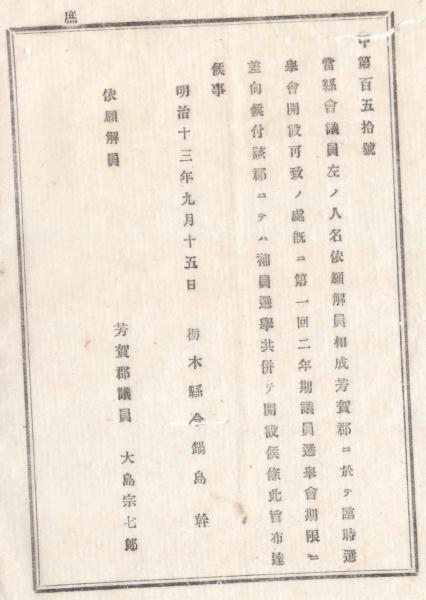 庶
甲第百五拾號
當縣會議員左ノ人名依願解員相成芳賀郡ニ於テ臨時選
擧會開設可致ノ處既ニ第一回二年期議員選擧會期限ニ
差向候付該郡ニテハ補員選擧共併テ開設候條此旨布達
候事
明治十三年九月十五日 栃木縣令鍋島幹
依願解員
芳賀郡議員 大島宗七郎